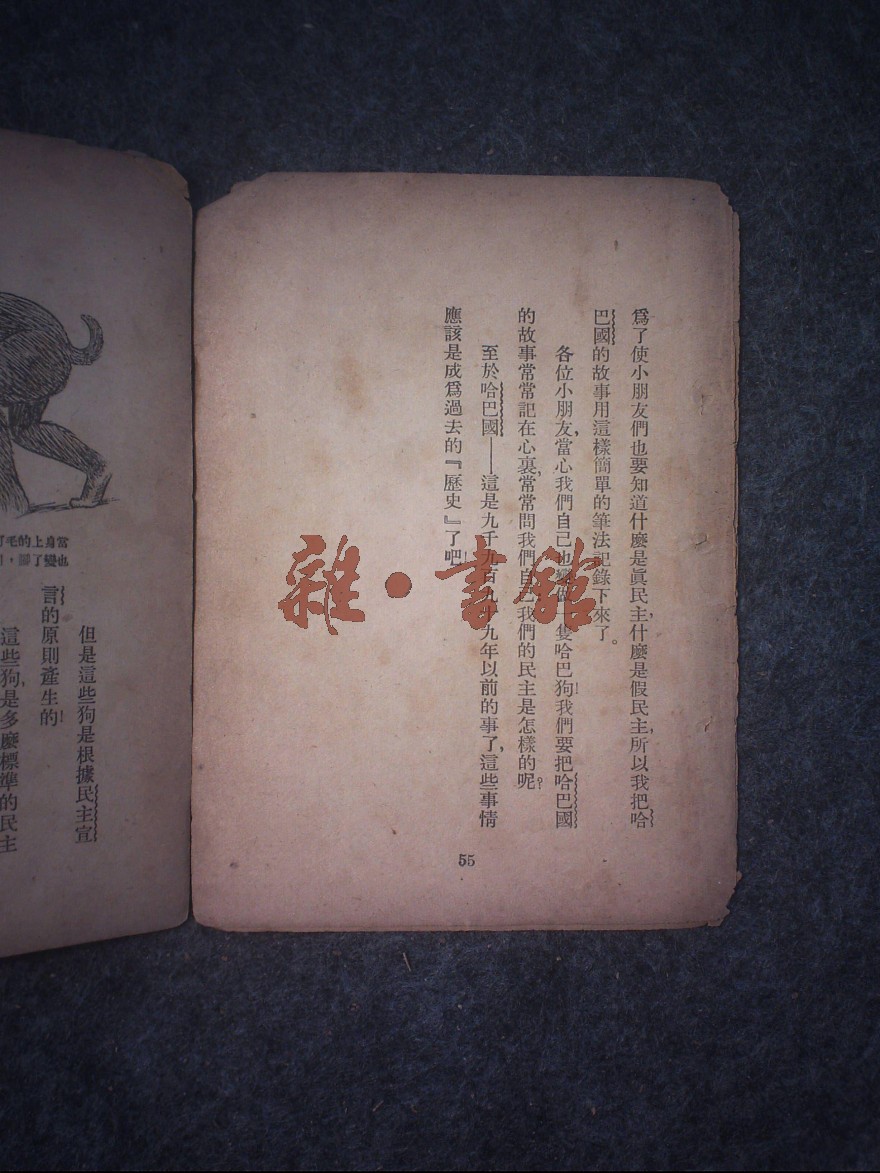 爲了使小朋友們也要知道什麼是眞民主，什麼是假民主，所以我把哈
巴國的故事用這樣簡單的筆法記錄下來了。
各位小朋友，當心我們自己也變做一隻哈巴狗！我們要把哈巴國
的故事常常記在心裏，常常問我們自己我們的民主是怎樣的呢？
至於哈巴國——這是九千九百九十九年以前的事了，這些事情
應該是成爲過去的『歷史』了吧！
55
雜·書館
毛的上身當
，腳了變也
但是這些狗是根據民主宣
言的原則產生的！
這些狗，是多麼標準的民主